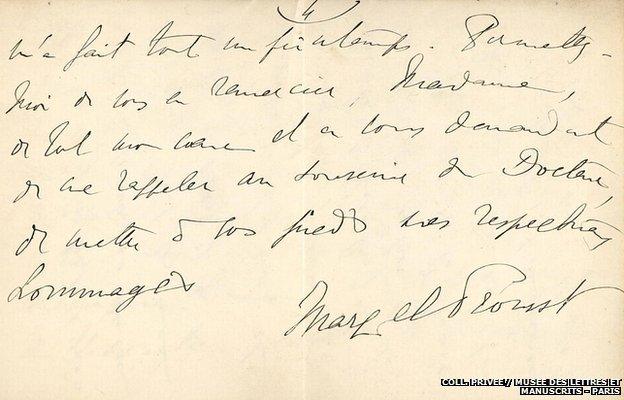 4
m'a fait tout un printemps. Permettez-
moi de vous en remercier, Madame,
de tout mon cœur et en vous demandant
de me rappeler au souvenir du Docteur,
de mettre à vos pieds mes respectueux
hommages
Marcel Proust
COLL. PRIVEE // MUSEE DES LETTRES ET
MANUSCRITS – PARIS